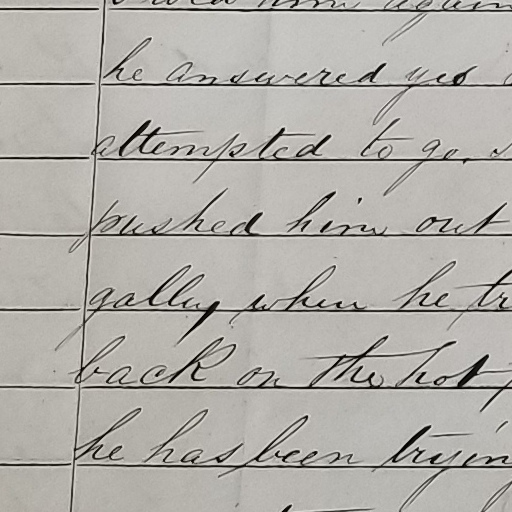 him again
he answered yes
attempted to go.
pushed him out
galley, when he tr
back on the hot
he has been trying